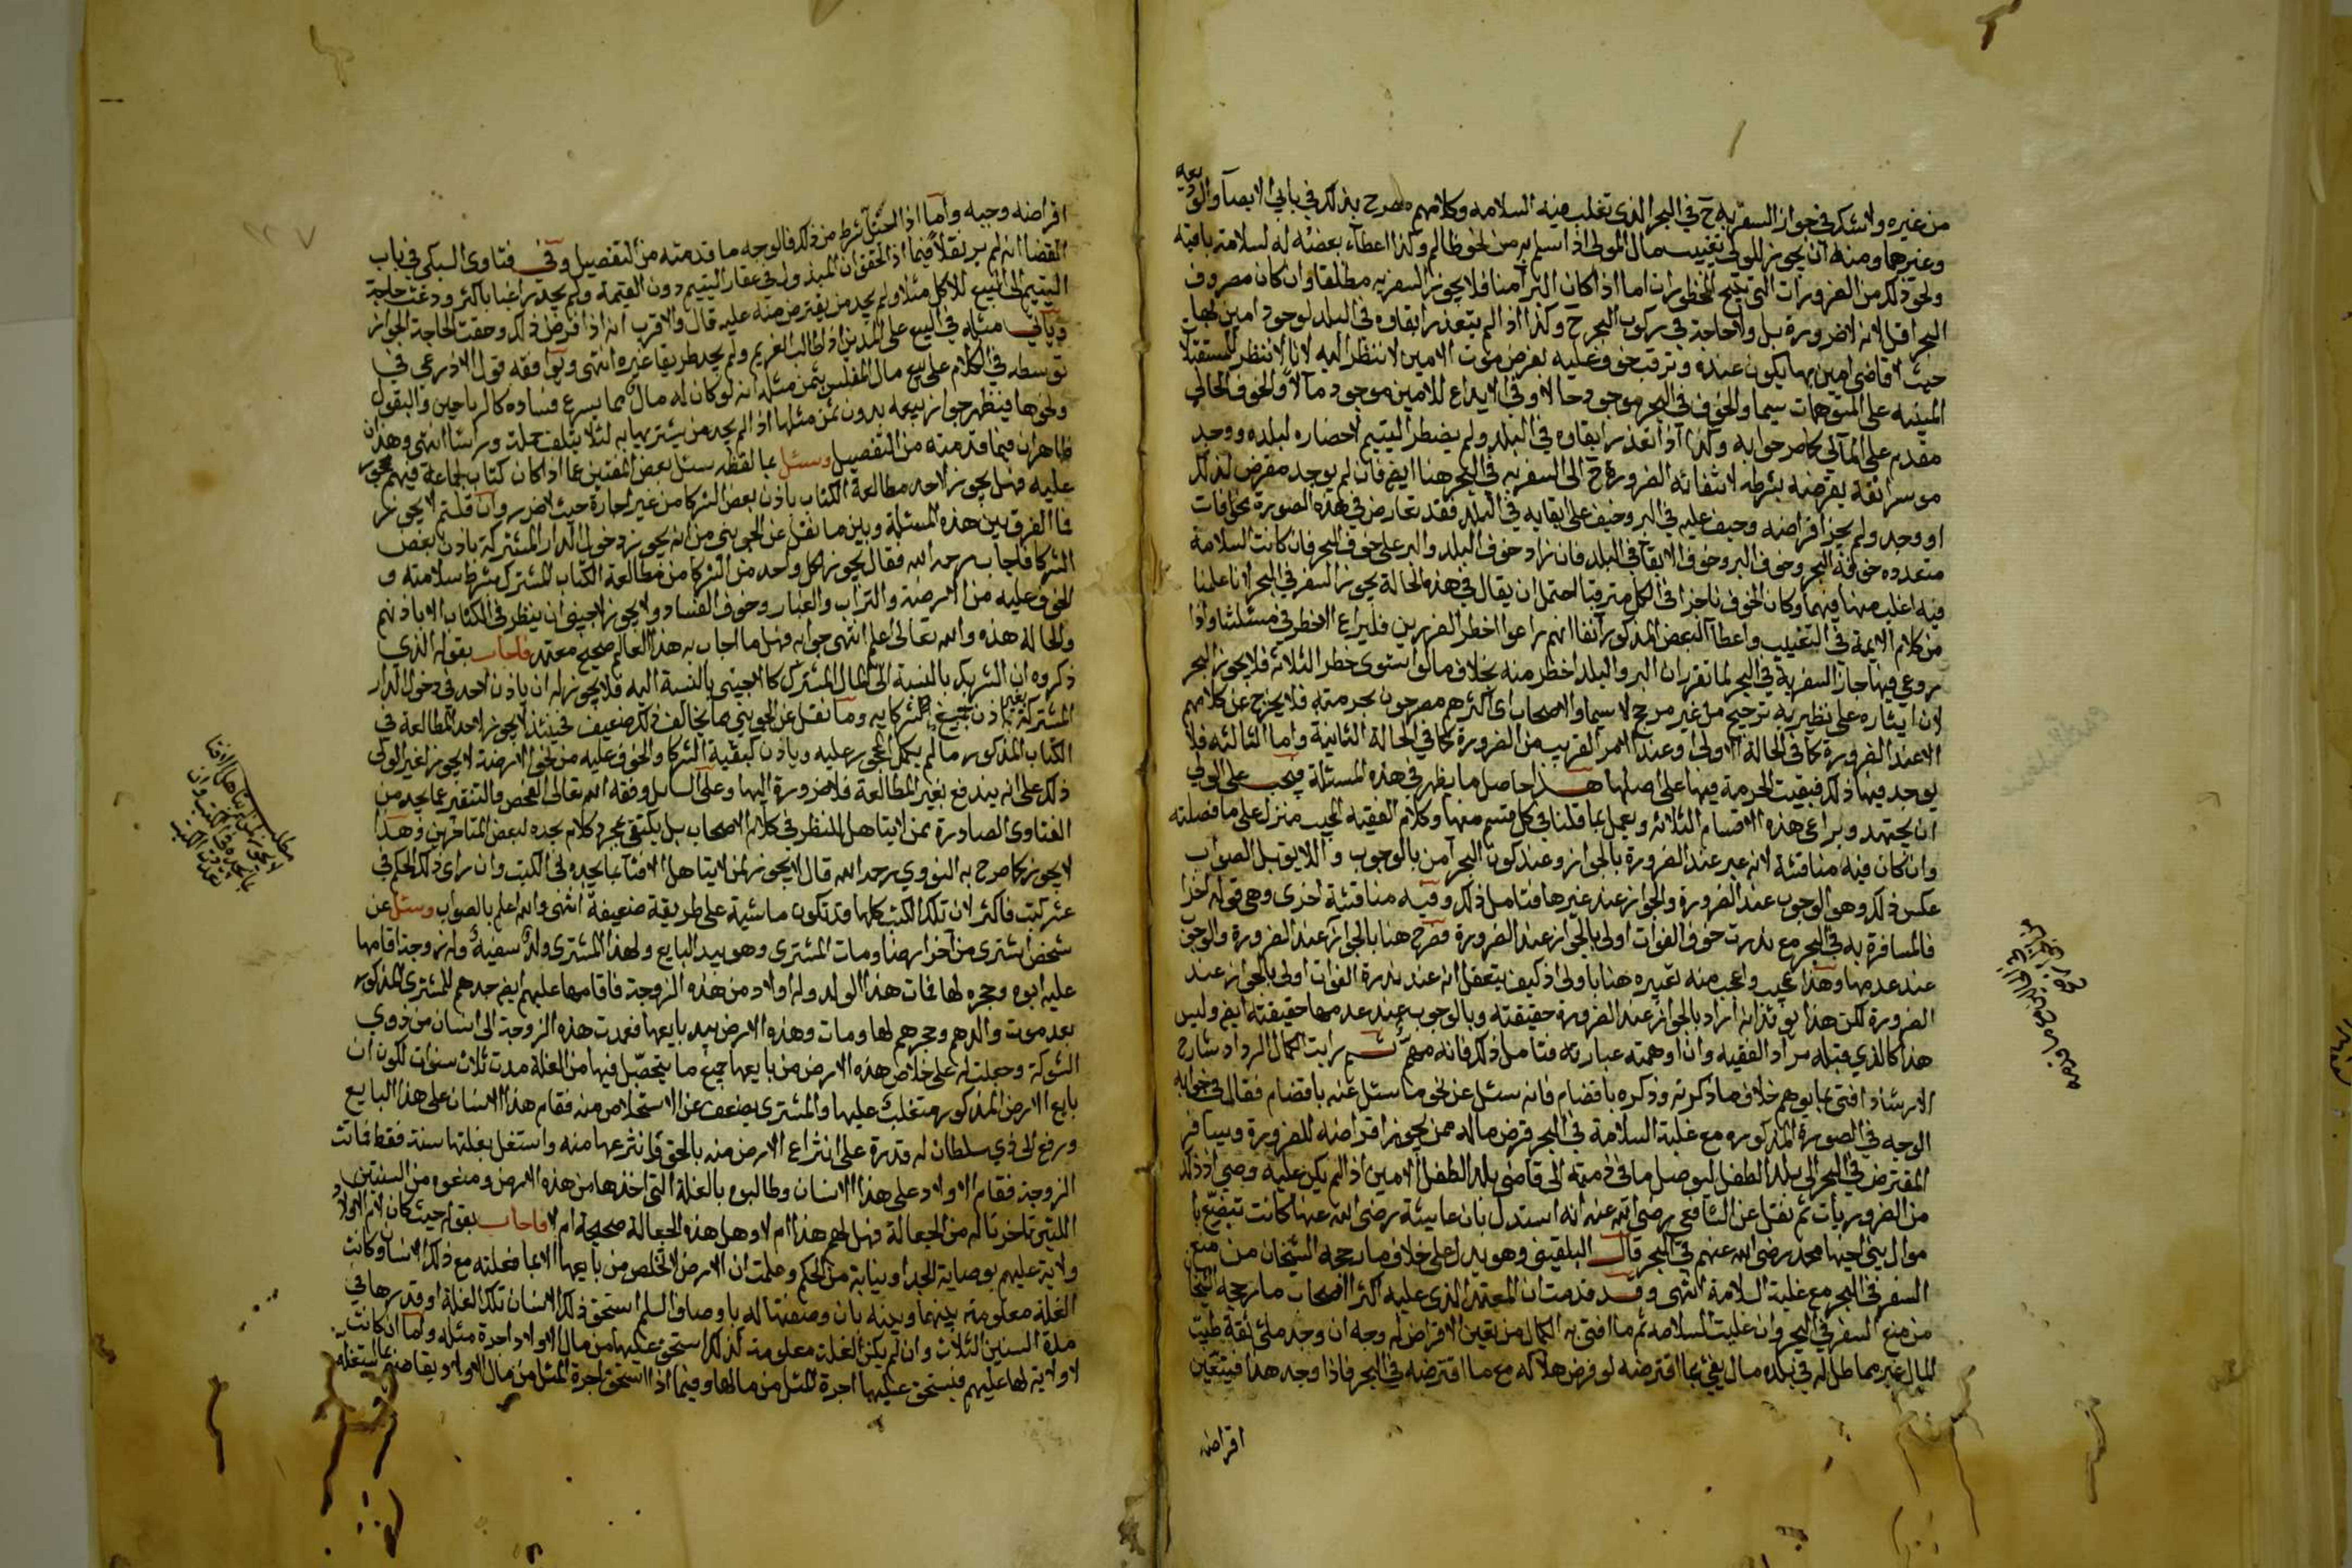 من غيره ولا شك في جواز السفر به ح في البحر الذي تغلب فيه السلامه وكلامهم مصرح بذلك في بابي الايصآ والوديعه
وغيرهما ومنه ان يجوز للولي تغييب مال المولى اذا سلم به من نحو ظالم وكذا اعطآء بعضه له لسلامة باقيه
ونحو ذلك من الضرورات التي تبيح المحظورات اما اذا كان البر آمنا فلا يجوز السفر به مطلقا وان كان مصروف
البحر اقل لانه لا ضرورة بل ولا حاجة في ركوب البحر ح وكذا اذا لم يتعذر ابقاوه في البلد لوجود امين بها
حيث لا قاضي امين بها يكون عنده وترقب خوف عليه بفرض موت الامين لا ننظر اليه لانا لا ننظر للمستقبلا
المبنيه على المتوهمات سيما والخوف في البحر موجود حالا وفي الايداع للامين موجود مآلا والخوف الحالي
مقدم على المآلي كما مر جوابه وكذا اذا تعذر ابقاوه في البلد ولم يضطر اليتيم لاحضاره لبلده ووجد
موسرا ثقة يقرضه بشرطه لانتفائه الضرورة ح الى السفر به في البحر هنا ايضا فان لم يوجد مقرض لذلك
او وجد ولم يجز اقراضه وخيف عليه في البر وخيف على ابقايه في البلد فقد تعارض في هذه الصورة مخافات
متعدده خوف البحر وخوف البر وخوف الابقآ في البلد فان زاد خوف البلد والبر على خوف البحر فان كانت السلامة
فيه اغلب منها فيهما وكان الخوف ناجزا في الكل مترقبا احتمل ان يقال في هذه الحالة يجوز السفر في البحر لانا علمنا
من كلام الايمة في التغييب واعطآ البعض المذكور آنفا انهم راعوا اخطر الضررين فليراع الاخطر في مسئلتنا واذا
روعي فيها جاز السفر به في البحر لما تقرر ان البر والبلد اخطر منه بخلاف ما لو استوى خطر الثلاثه فلا يجوز البحر
لان ايثاره على نظيريه ترجيح من غير مرجح لا سيما والاصحاب اي اكثرهم مصرحون بحرمته فلا يخرج عن كلامهم
الا عند الضرورة كما في الحالة الاولى او عند الامر القريب من الضرورة كما في الحالة الثانية واما الثالثه فلا
يوجد فيها ذلك فبقيت الحرمة فيها على اصلها هذا حاصل ما يظهر في هذه المسئلة فيجب على الولي
ان يجتهد ويراعي هذه الاقسام الثلاثه ويعمل بما قلنا في كل قسم منها وكلام الفقيه المجيب منزل على ما فصلته
وان كان فيه مناقشة لانه عبر عند الضرورة بالجواز وعند كون البحر آمن بالوجوب واللايق بل الصواب
عكس ذلك وهو الوجوب عند الضرورة والجواز عند غيرها فتامل ذلك وفيه مناقشة اخرى وهي قوله اخرا
فالمسافرة به في البحر مع ندرت خوف الفوات اولى بالجواز عند الضرورة فصرح هنا بالجواز عند الضرورة والوجوب
عند عدمها وهذا عجيب واعجب منه تعبيره هنا باولى اذ كيف يتعقل انه عند ندرة الفوات اولى بالجواز عند
الضرورة لكن هذا يوئذ انه اراد بالجواز عند الضرورة حقيقته وبالوجوب عند عدمها حقيقته ايضا وليس
هذا كالذي قبله مراد الفقيه وان اوهمته عبارته فتامل ذلك فانه مهم ثم رايت الكمال الرداد شارح
الارشاد افتى بما يوهم خلاف ما ذكرته وذكره باقضام فانه سئل عن نحو ما سئل عنه باقضام فقال في جوابه
الوجه في الصورة المذكوره مع غلبة السلامة في البحر قرض ماله ممن يجوز اقراضه للضرورة ويسافر
المقترض في البحر الى بلد الطفل ليوصل ما في ذمته الى قاضي بلد الطفل الامين اذا لم يكن عليه وصي اذ ذلك
من الضروريات ثم نقل عن الشافعي رضي الله عنه انه استدل بان عايشة رضي الله عنها كانت تبضع با
موال بني اخيها محمد رضي الله عنهم في البحر قال البلقيني وهو يدل على خلاف ما رجحه الشيخان من منع
السفر في البحر مع غلبة السلامة انتهى وقد قدمت ان المعتمد الذي عليه اكثر الاصحاب ما رجحه الشيخا
من منع السفر في البحر وان غلبت السلامه ثم ما افتى به الكمال من تعين الاقراض له وجه ان وجد ملئ ثقة طيب
المال غير مماطل له في بلده مال يفي بما اقترضه لو فرض هلاكه مع ما اقترضه في البحر فاذا وجد هذا فيتعين
اقراضه
اقراضه وجيه واما اذا اختل شرط من ذلك فالوجه ما قدمته من التفصيل وفي فتاوى السبكي في باب
القضا انه لم ير نقلا فيما اذا تحقق ان المبذول في عقار اليتيم دون القيمة ولم يجد راغبا باكثر ودعت حاجة
اليتيم الى البيع للاكل مثلا ولم يجد من يقترض منه عليه قال والاقرب انه اذا فرض ذلك وحقت الحاجة الجواز
وياتي مثله في البيع على المدين اذا طالب الغريم ولم يجد طريقا غيره انتهى ويوافقه قول الاذرعي في
توسطه في الكلام على بيع مال المفلس بثمن مثله انه لو كان له مال مما يسرع فساده كالرياحين والبقول
ونحوها فيظهر جواز بيعه بدون ثمن مثلها اذا لم يجد من يشتريها به لئلا يتلف جملة وراسا انتهى وهذان
ظاهران فيما قدمته من التفصيل وسئل بما لفظه سئل بعض المفتين عما اذا كان كتاب لجماعة فيهم محجور
عليه فهل يجوز لاحد مطالعة الكتاب باذن بعض الشركا من غير اجارة حيث لا ضرر وان قلتم لا يجوز
فما الفرق بين هذه المسئلة وبين ما نقل عن الجويني من انه يجوز دخول الدار المشتركة باذن بعض
الشركا فاجاب رحمه الله فقال يجوز لكل واحد من الشركا من مطالعة الكتاب المشترك بشرط سلامته و
الخوف عليه من الارضة والتراب والغبار وخوف الفساد ولا يجوز لاجنبي ان ينظر في الكتاب الا باذنهم
والحالة هذه والله تعالى اعلم انتهى جوابه فهل ما اجاب به هذا العالم صحيح معتمد فاجاب بقوله الذي
ذكروه ان الشريك بالنسبة الى المال المشترك كالاجنبي بالنسبة اليه فلا يجوز له ان ياذن لاحد في دخول الدار
المشتركة بغير اذن جميع شركايه وما نقل عن الجويني مما يخالف ذلك ضعيف فحينئذ لا يجوز لاحد المطالعة في
الكتاب المذكور ما لم يكمل المحجور عليه وياذن كبقية الشركا والخوف عليه من نحو الارضة لا يجوز لغير الولي
ذلك على انه يندفع بغير المطالعة فلا ضرورة اليها وعلى السايل وفقه الله تعالى الفحص والتنقير عما يجد من
الفتاوى الصادرة ممن لا يتاهل للنظر في كلام الاصحاب بل يكتفي بمجرد كلام يجده لبعض المتاخرين وهذا
لا يجوز كما صرح به النووي رحمه الله قال لا يجوز لمن لا يتاهل الافتآ بما يجده في الكتب وان راى ذلك الحكم في
عشر كتب فاكثر لان تلك الكتب كلها قد تكون ماشية على طريقة ضعيفة انتهى والله اعلم بالصواب وسئل عن
شخص اشترى من آخر ارضا ومات المشترى وهو بيد البايع ولهذا المشترى ولد سفيه وله زوجة اقامها
عليه ابوه وحجره لها فمات هذا الولد وله اولاد من هذه الزوجة فاقامها عليهم ايضا جدهم المشترى المذكور
بعد موت والدهم وحجرهم لها ومات وهذه الارض بيد بايعها فعمدت هذه الزوجة الى انسان من ذوي
الشوكة وجعلت له على خلاص هذه الارض من بايعها جميع ما يتحصل فيها من الغلة مدت ثلاث سنوات لكون ان
بايع الارض المذكور متغلب عليها والمشترى يضعف عن الاستخلاص منه فقام هذا الانسان على هذا البايع
ورفع الى ذي سلطان له قدرة على انتزاع الارض منه بالحق فانتزعها منه واستغل بغلتها سنة فقط فماتت
الزوجة فقام الاولاد على هذا الانسان وطالبوه بالغلة التي اخذها من هذه الارض ومنعوه من السنتين
اللتين تاخرتا له من الجعالة فهل لهم هذا ام لا وهل هذه الجعالة صحيحة ام لا فاجاب بقوله حيث كان لام الاولاد
ولاية عليهم بوصاية الجد او بنيابة من الحكم وعلمت ان الارض لا تخلص من بايعها الا بما فعلته مع ذلك الانسان وكانت
الغلة معلومة بينهما وبينه بان وصفتها له باوصاف السلم استحق ذلك الانسان تلك الغلة او قدرها في
مدة السنين الثلاث وان لم يكن الغلة معلومة كذلك استحق عليها من مال الاولاد اجرة مثله واما ان كانت
لا ولاية لها عليهم فيستحق عليها اجرة المثل من مالها وفيما اذا استحق اجرة المثل من مال الاولاد يقاصص بما استغله